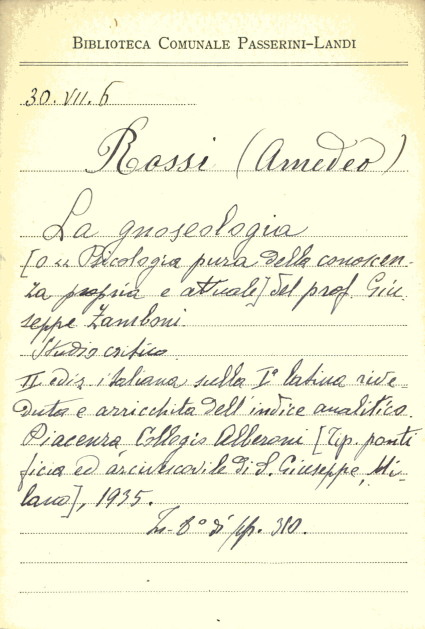 BIBLIOTECA COMUNALE PASSERINI-LANDI
30. VII. 6
Rossi (Amedeo)
La gnoseologia
[o Psicologia pura della conoscen-
za propria e attuale] del prof. Giu
seppe Zamboni.
Studio critico.
II ediz. italiana sulla Iª latina rive
duta e arricchita dell'indice analitico.
Piacenza, Collegio Alberoni [Tip. ponti
ficia ed arcivescovile di S. Giuseppe, Mi-
lano], 1935.
In-8º di pp. 310.